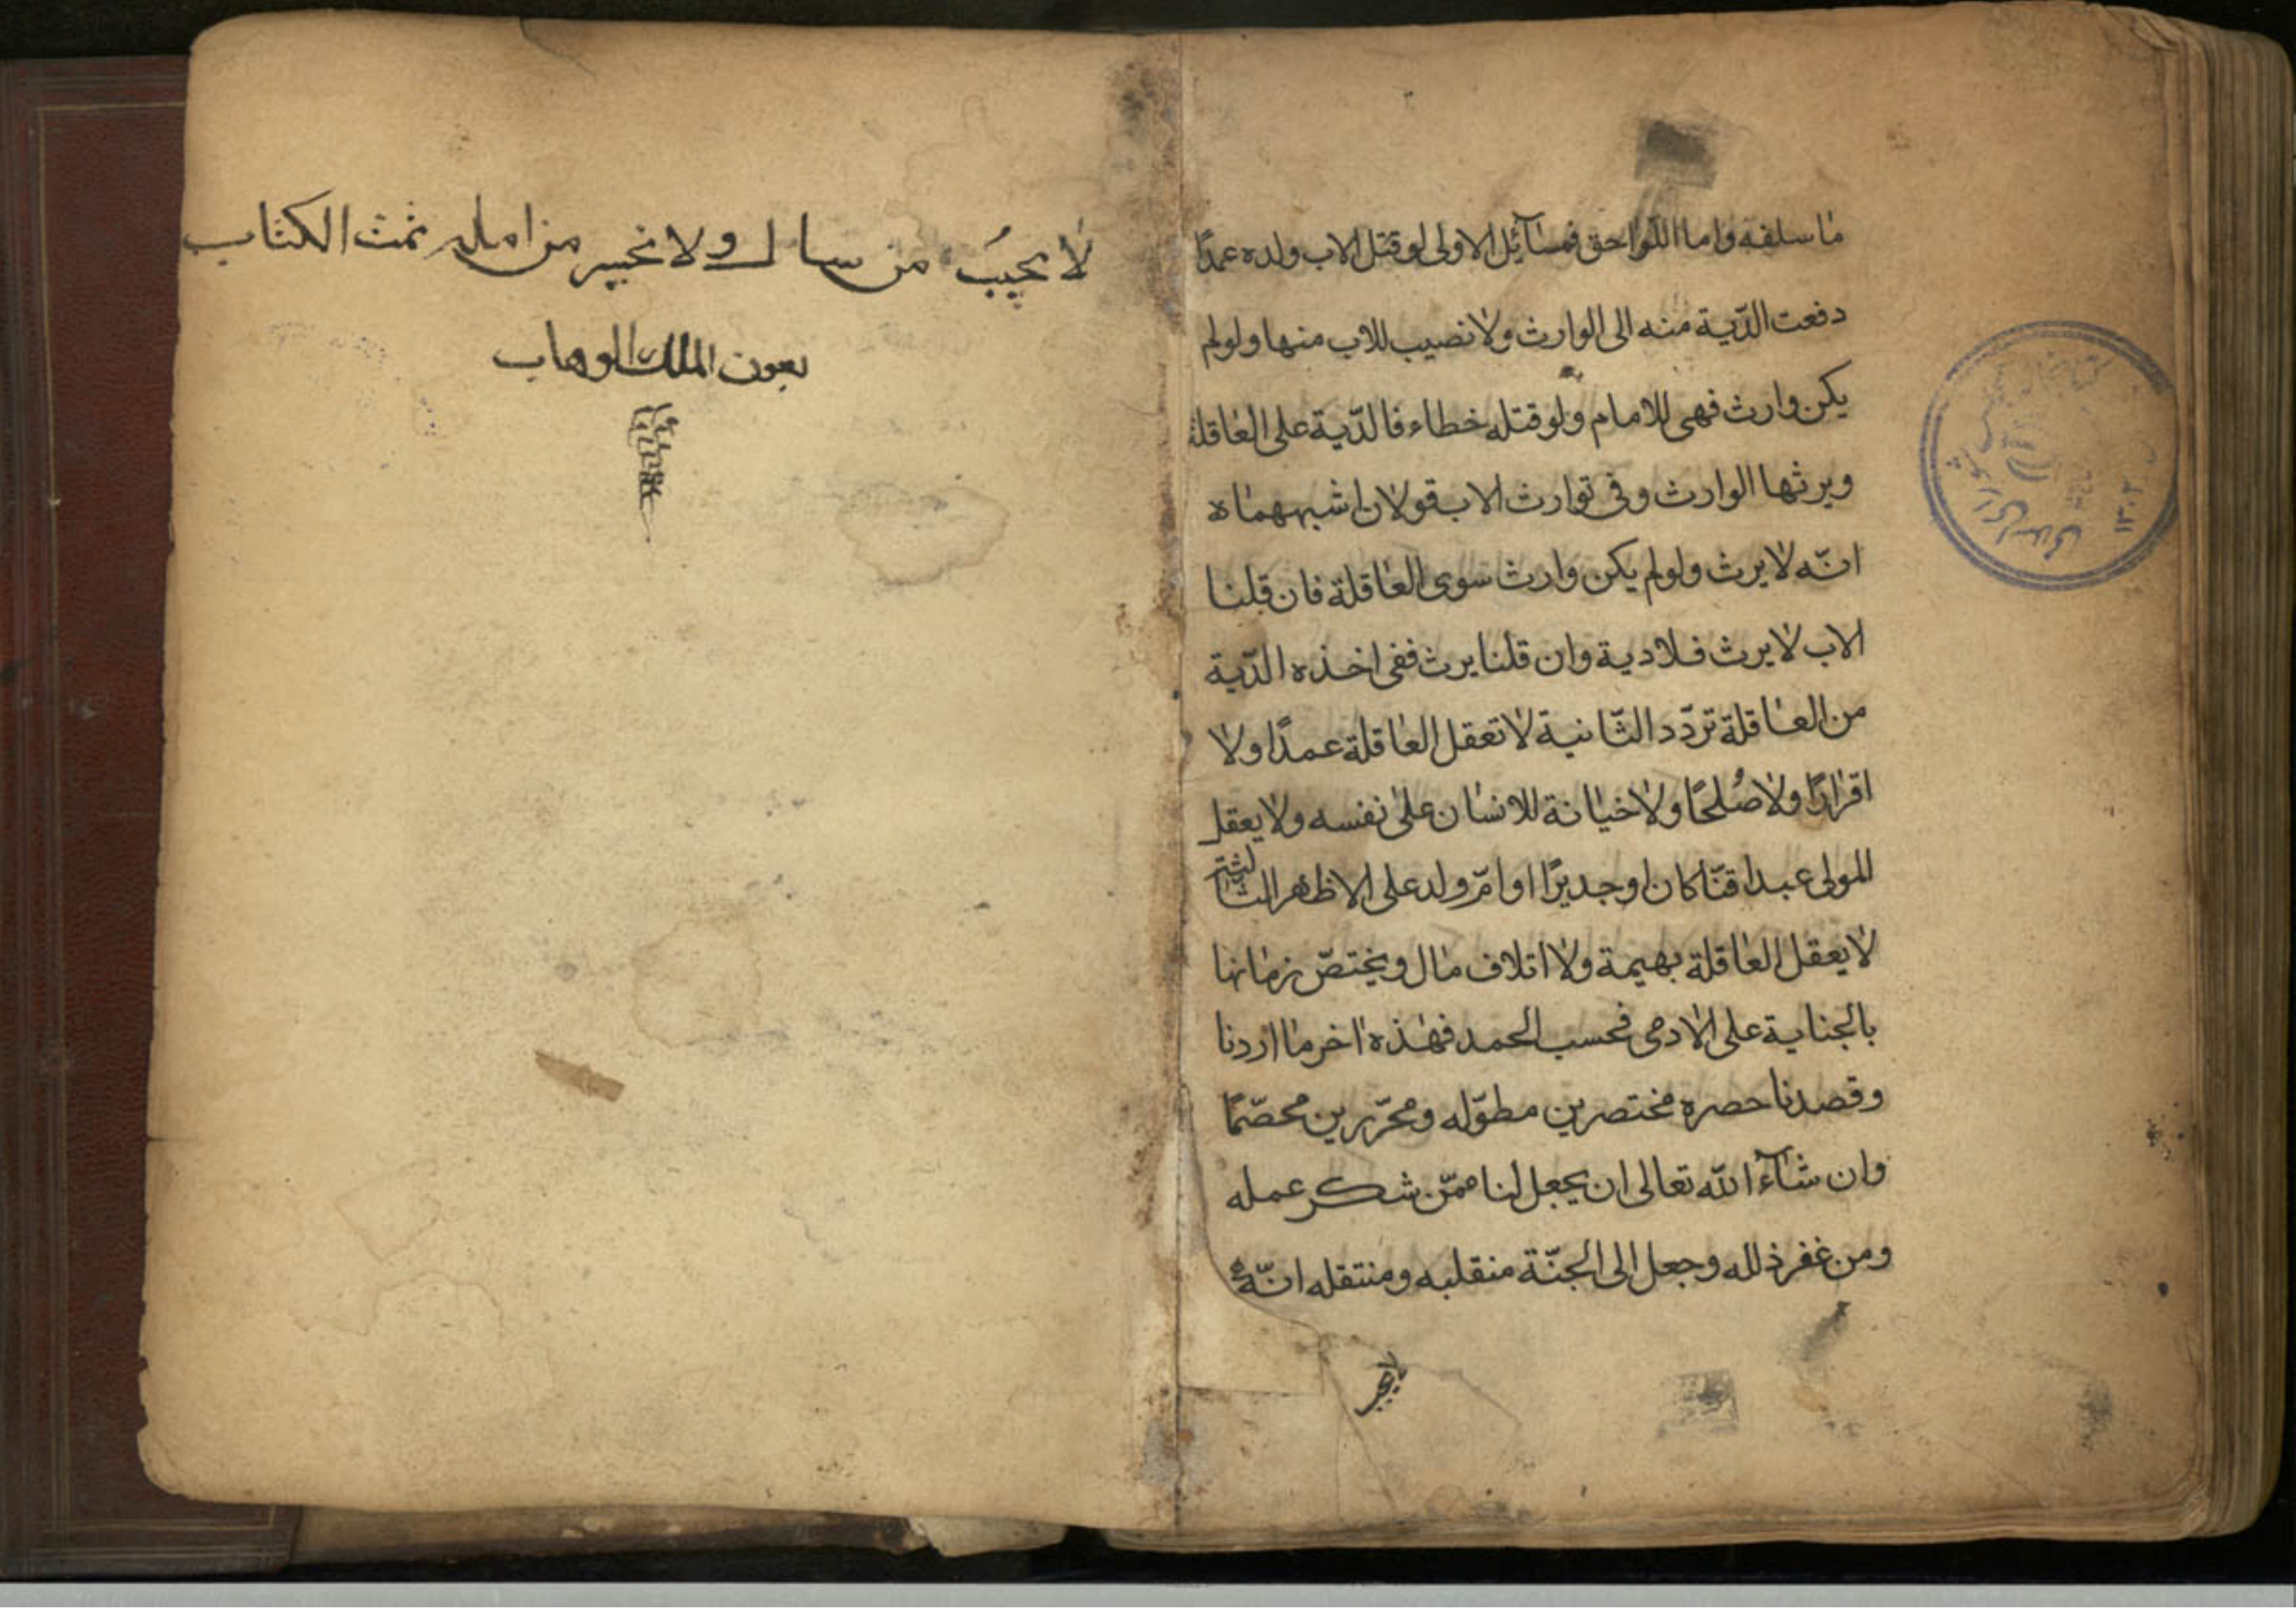 ما سلفه واما اللواحق فمسآئل الاولى لو قتل الاب ولده عمدًا
دفعت الدّية منه الى الوارث ولا نصيب للاب منها ولو لم
يكن وارث فهى للامام ولو قتله خطاء فالدّية على العاقلة
ويرثها الوارث وفى توارث الاب قولان اشبههما ه
انّه لا يرث ولو لم يكن وارث سوى العاقلة فان قلنا
الاب لا يرث فلا دية وان قلنا يرث ففى اخذه الدّية
من العاقلة تردّد الثّانية لا تعقل العاقلة عمدًا ولا
اقرارًا ولا صُلحًا ولا خيانة للانسان على نفسه ولا يعقل
المولى عبدا قنّا كان او جديرًا او امّ ولد على الاظهر الثالثة
لا يعقل العاقلة بهيمة ولا اتلاف مال ويختصّ زمانها
بالجناية على الادمى فحسب الحمد فهذه اخر ما اردنا
وقصدنا حصره مختصرين مطوّله ومحرّرين محصّمًا
وان شآء الله تعالى ان يجعل لنا ممّن شكر عمله
ومن غفر ذلله وجعل الى الجنّة منقلبه ومنتقله انّه
لا يجيب
لا يجيبُ من سال ولا نخيير من امله تمت الكتاب
بعون الملك الوهاب
١٣٠٢